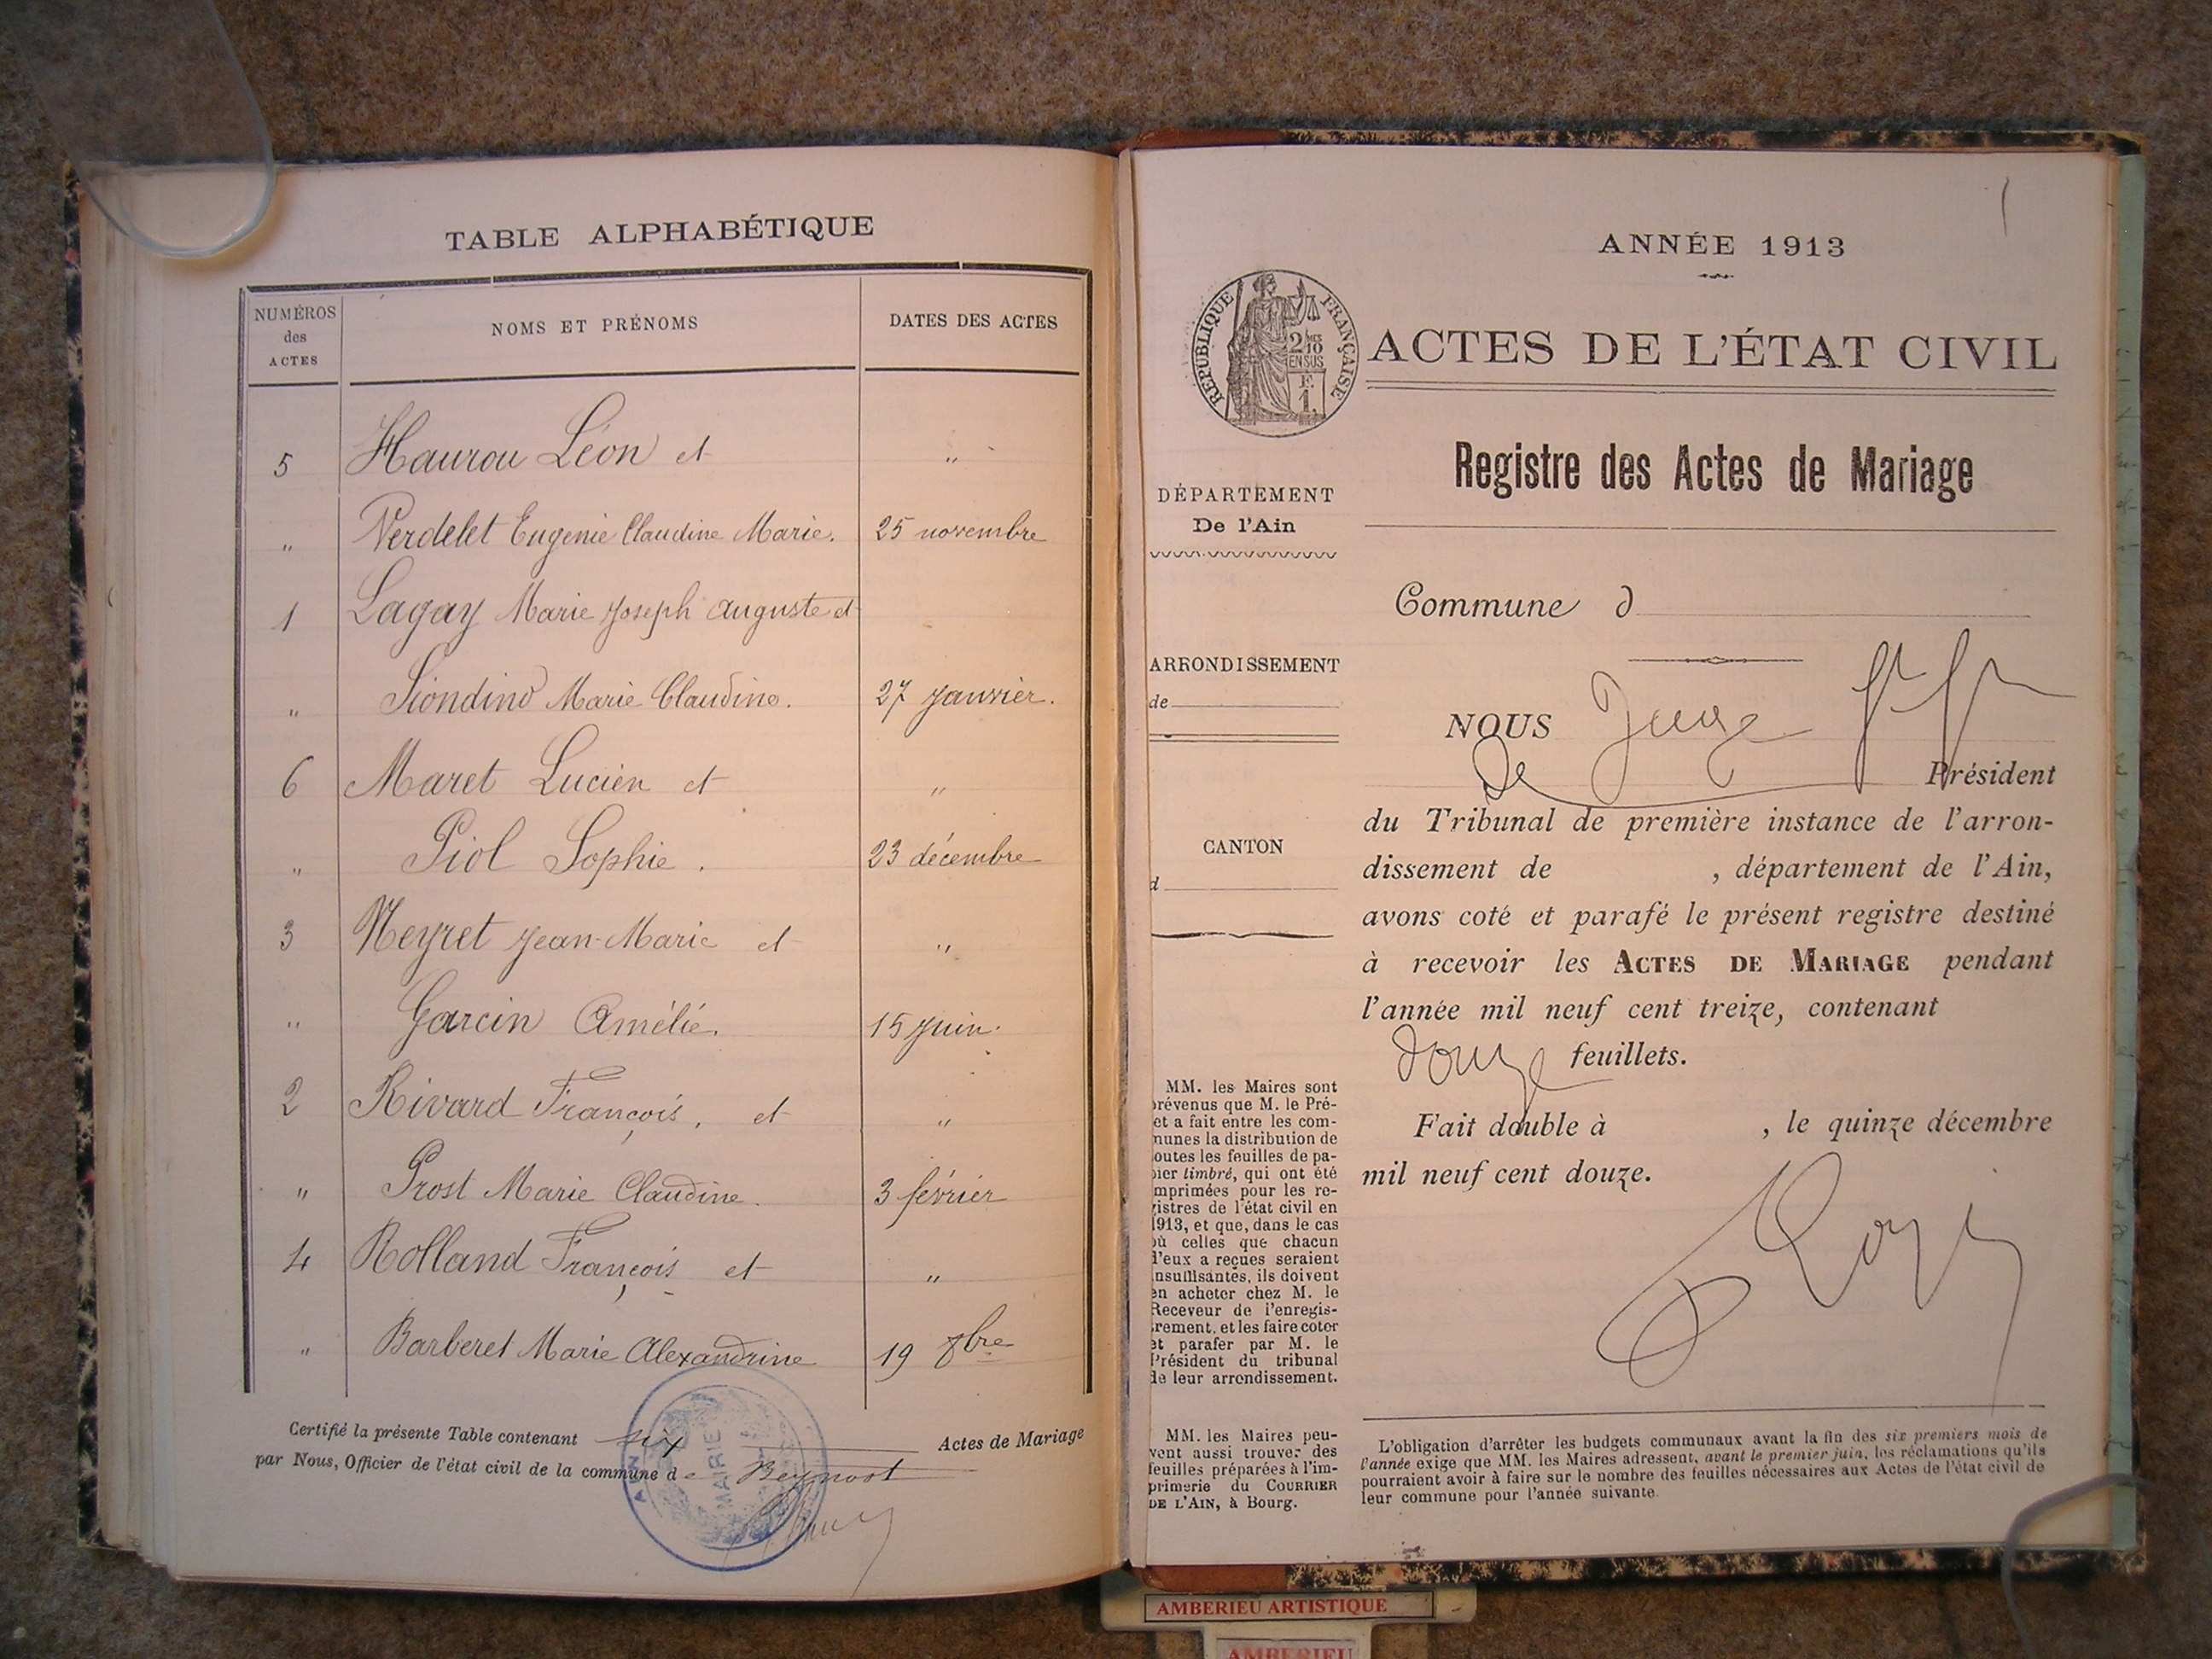 TABLE ALPHABÉTIQUE
NUMÉROS
des
ACTES
NOMS ET PRÉNOMS
DATES DES ACTES
5 Haurou Léon et "
" Verdelet Eugenie Claudine Marie. 25 novembre
1 Lagay Marie Joseph Auguste et
" Siondino Marie Claudine. 27 Janvier.
6 Maret Lucien et "
" Piol Sophie. 23 décembre
3 Neyret Jean-Marie et "
" Garcin Amélie. 15 Juin.
2 Rivard François, et "
" Prost Marie Claudine. 3 février
4 Rolland François et "
" Barberet Marie Alexandrine 19 8bre
Certifié la présente Table contenant six Actes de Mariage
par Nous, Officier de l'état civil de la commune de Beynost
MAIRIE
AIN
ANNÉE 1913
RÉPUBLIQUE FRANÇAISE
2/10
EN SUS
F.
1.
ACTES DE L'ÉTAT CIVIL
Registre des Actes de Mariage
DÉPARTEMENT
De l'Ain
Commune d
ARRONDISSEMENT
de
CANTON
d
NOUS Juge
De Président
du Tribunal de première instance de l'arron-
dissement de , département de l'Ain,
avons coté et parafé le présent registre destiné
à recevoir les ACTES DE MARIAGE pendant
l'année mil neuf cent treize, contenant
douze feuillets.
Fait double à , le quinze décembre
mil neuf cent douze.
MM. les Maires sont
prévenus que M. le Pré-
et a fait entre les com-
munes la distribution de
outes les feuilles de pa-
pier timbré, qui ont été
mprimées pour les re-
gistres de l'état civil en
1913, et que, dans le cas
où celles que chacun
d'eux a reçues seraient
insuffisantes, ils doivent
en acheter chez M. le
Receveur de l'enregis-
trement, et les faire coter
et parafer par M. le
Président du tribunal
de leur arrondissement.
MM. les Maires peu-
vent aussi trouver des
feuilles préparées à l'im-
primerie du COURRIER
DE L'AIN, à Bourg.
L'obligation d'arrêter les budgets communaux avant la fin des six premiers mois de
l'année exige que MM. les Maires adressent, avant le premier juin, les réclamations qu'ils
pourraient avoir à faire sur le nombre des feuilles nécessaires aux Actes de l'état civil de
leur commune pour l'année suivante.
AMBERIEU ARTISTIQUE
AMBERIEU